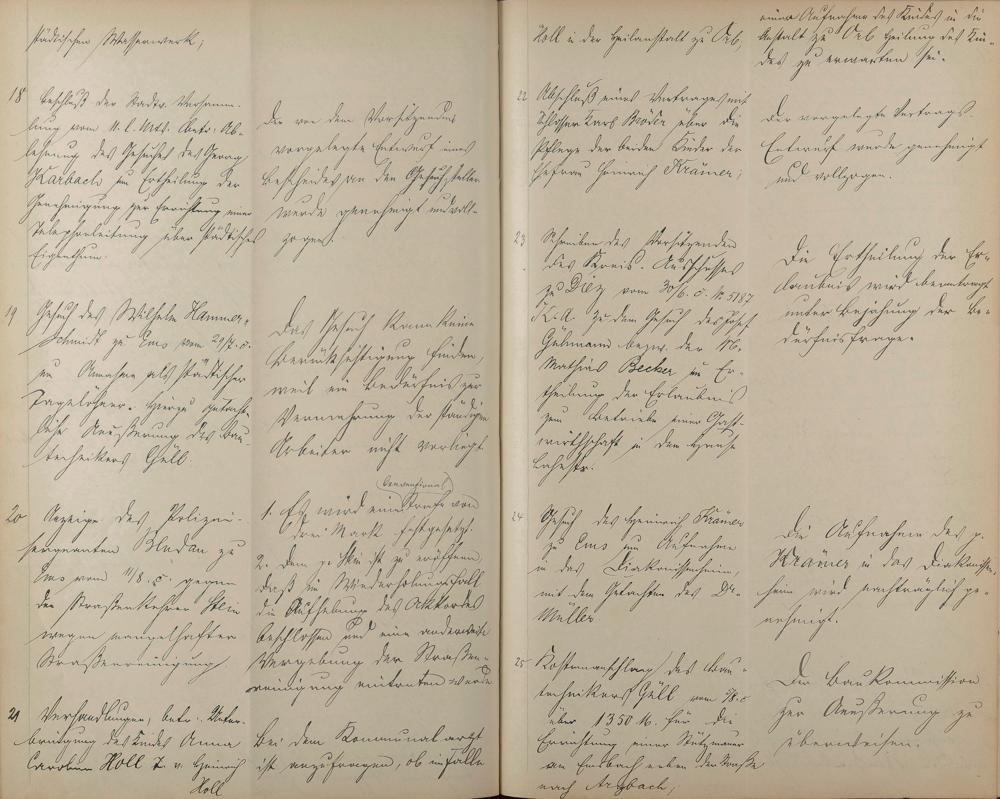 städtischen Wasserwerk;
18 Beschluß der Stadtv. Versamm-
lung vom 11. l. Mts. betr. Ab-
lehnung des Gesuches des Georg
Karbach um Ertheilung der
Genehmigung zur Errichtung einer
Telephonleitung über städtisches
Eigenthum.
Der von dem Vorsitzenden
vorgelegte Entwurf eines
Bescheides an den Gesuchsteller
wurde genehmigt und voll-
zogen.
19 Gesuch des Wilhelm Hammer-
schmidt zu Ems vom 29/7. c.
um Annahme als städtischer
Tagelöhner. Hierzu gutacht-
liche Aeußerung des Bau-
technikers Güll.
Das Gesuch kann keine
Berücksichtigung finden,
weil ein Bedürfnis zur
Vermehrung der ständigen
Arbeiter nicht vorliegt
20 Anzeige des Polizei-
sergeanten Bladau zu
Ems vom 11/8. c. gegen
den Straßenkehrer Stein
wegen mangelhafter
Straßenreinigung.
(Conventional)
1. Es wird eine Strafe von
drei Mark festgesetzt.
2. dem p. Stein ist zu eröffnen,
daß im Wiederholungsfall
die Aufhebung des Akkordes
beschlossen und eine anderweite
Vergebung der Straßen-
reinigung eintreten werde
21 Verhandlungen, betr. Unter-
bringung des Kindes Anna
Caroline Holl T. v. Heinrich
Holl
Bei dem Kommunalarzt
ist anzufragen, ob im Falle
Holl in der Heilanstalt zu Orb,
einer Aufnahme des Kindes in die
Anstalt zu Orb Heilung des Kin-
des zu erwarten sei.
22 Abschluß eines Vertrages mit
Schlosser Karl über die
Pflege der beiden Kinder der
Ehefrau Heinrich Krämer;
Der vorgelegte Vertrags-
Entwurf wurde genehmigt
und vollzogen.
23 Schreiben des Vorsitzenden
des Kreis-Ausschusses
zu Diez vom 30/6. c. № 5187
K.A. zu dem Gesuch des Josef
bezw. der
Mathias Becker um Er-
theilung der Erlaubnis
zum Betriebe einer Gast-
wirthschaft in dem Hause
Lahnstr.
Die Ertheilung der Er-
laubnis wird beantragt
unter Bejahung der Be-
dürfnisfrage.
24 Gesuch des Heinrich Krämer
zu Ems um Aufnahme
in das Diakonissenheim,
mit dem Gutachten des Dr.
Müller
Die Aufnahme des p.
Krämer in das Diakonissen-
heim wird nachträglich ge-
nehmigt.
25 Kostenanschlag des Bau-
technikers Güll vom /8. c
über 1350 M. für die
Errichtung einer Stützmauer
am Emsbach neben der Straße
nach Arzbach;
Der Baukommission
zur Aeußerung zu
überweisen.